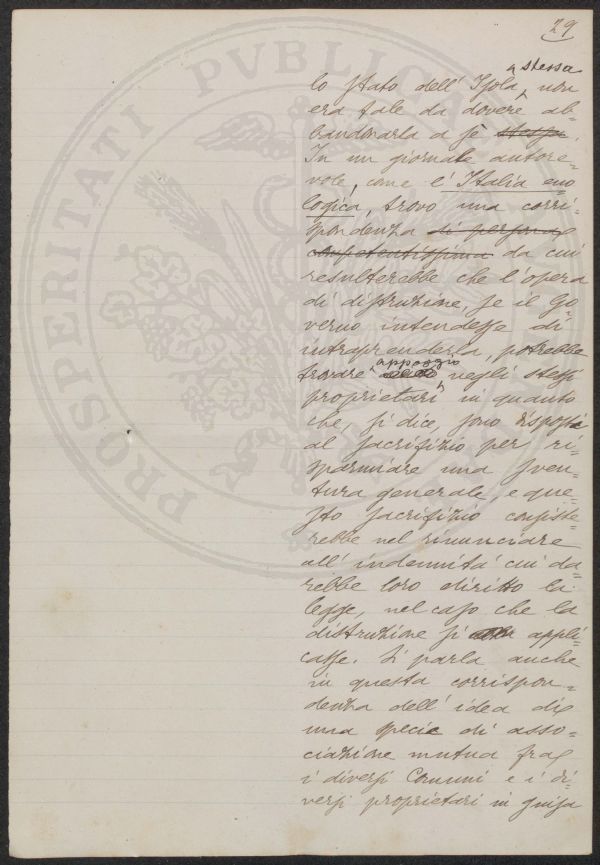 29
stessa
lo stato dell'Isola, non
era tale da dovere ab=
bandonarla a sè stessa.
In un giornale autore=
vole, come l'Italia eno=
logica, trovo una corri=
spondenza di persona
competentissima da cui
resulterebbe che l'opera
di distruzione, se il Go=
verno intendesse di
intraprenderla, potrebbe
appoggio
trovare negli stessi
proprietari in quanto
che, si dice, sono disposti
al sacrifizio per ri=
sparmiare una sven=
tura generale, e que=
sto sacrifizio consiste=
rebbe nel rinunciare
all'indennità cui da=
rebbe loro diritto la
legge, nel caso che la
distruzione si appli=
casse. Si parla anche
in questa corrispon=
denza dell'idea di
una specie di asso=
ciazione mutua fra
i diversi Comuni e i di=
versi proprietari in guisa
PROSPERITATI PVBLICA